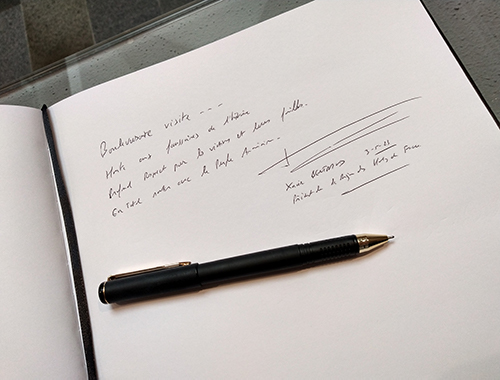 Bouleversante visite ---
Honte aux faussaires de l'histoire
Profond Respect pour les victimes et leurs familles.
En totale union avec le Peuple Arménien.
Xavier BERTRAND
Président de la Région des Hauts de France